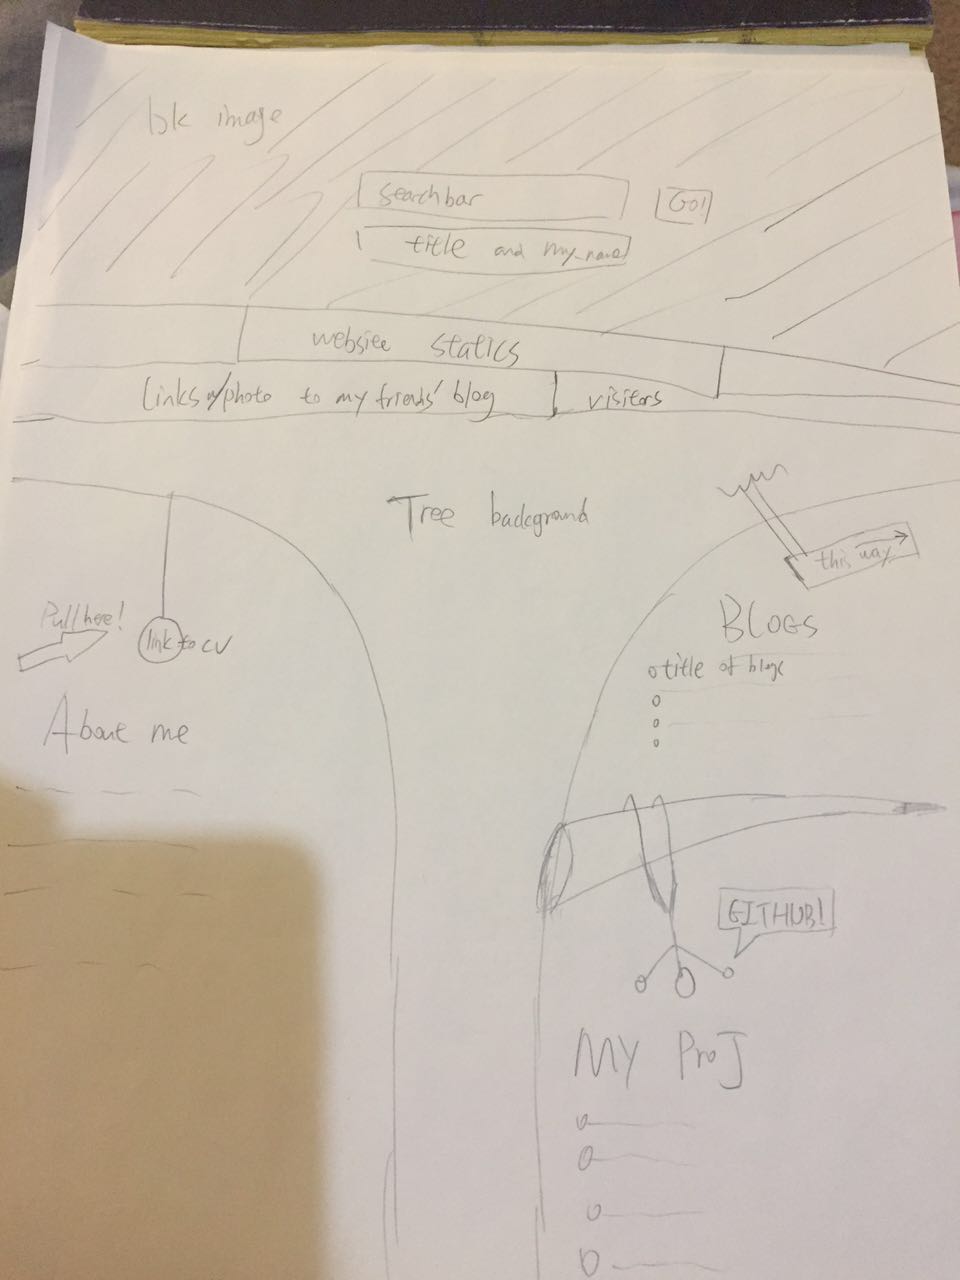 bk image
searchbar
Go!
title and my name
websiee statics
links w/photo to my friends' blog
visitors
Tree background
this way
Pull here!
link to CV
BLOGS
title of blogs
About me
GITHUB!
MY ProJ